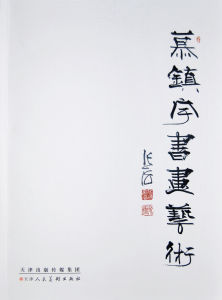 慕鎮宇書畫藝術
天津出版传媒集团
天津人民美術出版社